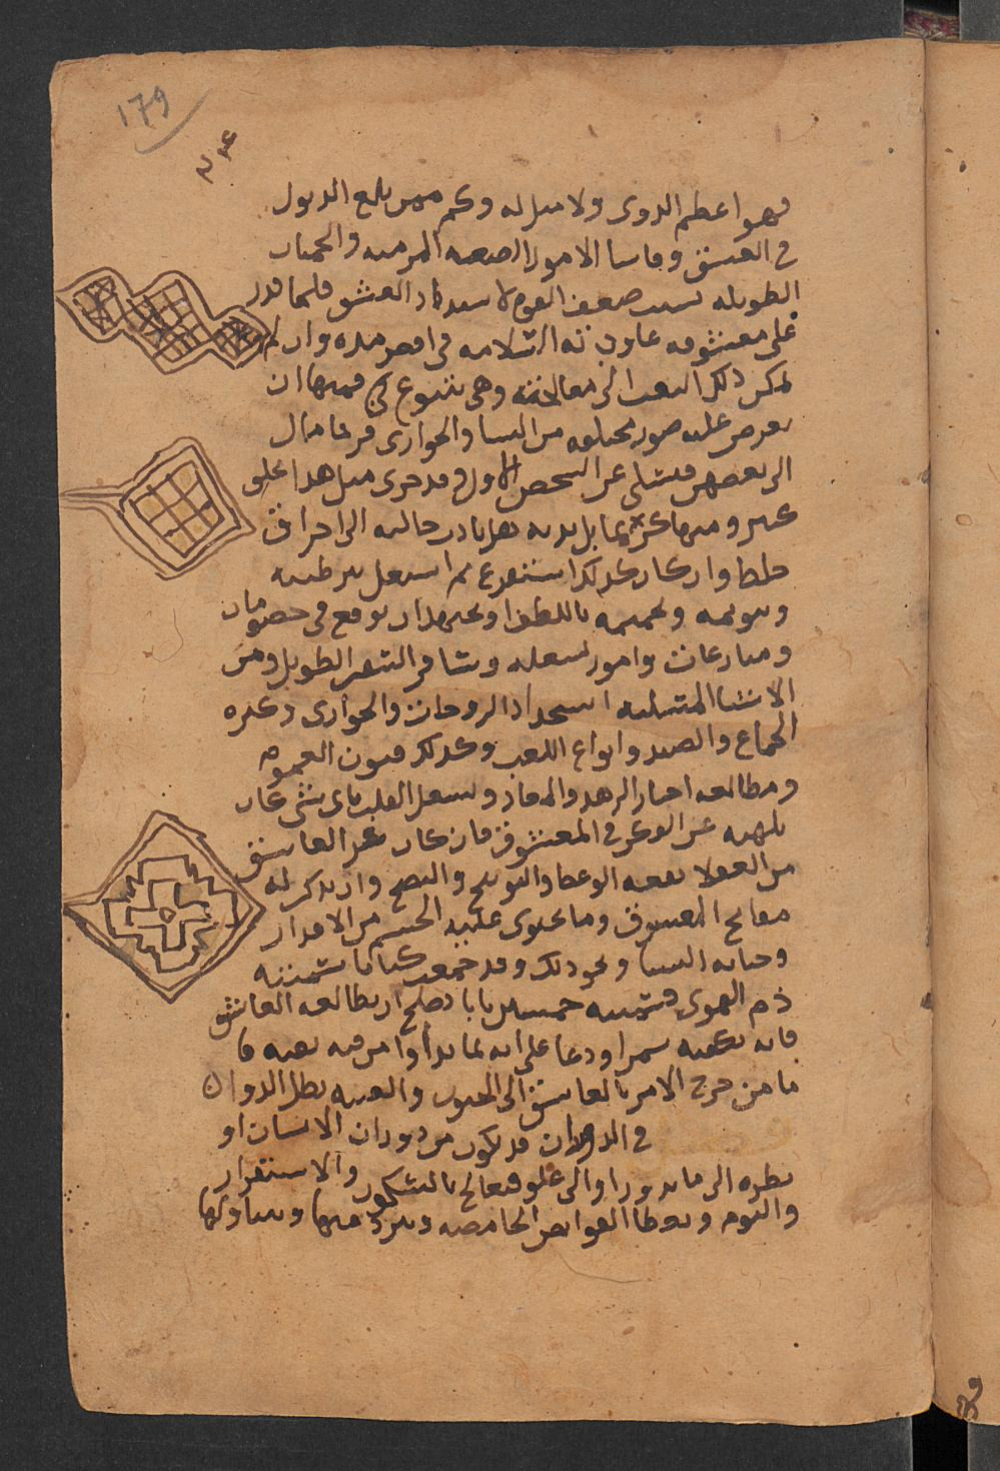 179
فهو اعظم الدوى ولا مىل له وكم ممن بلغ الدبول
فى العشق وقاسا الامور الصعبه المرمىه والحمىات
الطويله بسبب ضعف القوى لاسىىداد العشق فلما قدر
على معشوقه عاودته السلامه فى اقصر مده وان لم
يمكن ذلك التعب الى معالجته وهى تتنوع فمنها ان
يعرض عليه صور مختلفه من النسا والجوارى فربما مال
الى بعضهن فتسلى عن الشخص الاول وقد جرى مثل هذا على
كثير ومنها كثره تامل بدنه هل بادر حاله الى احراق
خلط وان كان كذلك استفرغ ثم اشتغل بترطيبه
وتنويمه وتحميمه باللطف او بحىله ان يوقع فى خصومات
ومنازعات وامور تشغله ويسافر السفر الطويل ومن
الاشيا المسليه استجداد الزوجات والجوارى وكثره
الجماع والصيد وانواع اللعب وكذلك فنون العموم
ومطالعه اخبار الزهد والمعاد ويشغل القلب باى شى كان
يلهيه عن الفكر فى المعشوق فان كان هذا العاشق
من العقلا نفعه الوعظ والتوبيخ والنصح وان يذكر له
مقابح المعشوق وما يحتوى عليه الجسم من الاقذار
وخيانه النسا ونحو ذلك وقد جمعت كتابا سميته
ذم الهوى قسمته خمسين بابا يصلح ان يطالعه العاشق
فانه يكفيه سمرا ودعا على انه لما بدا وامر فيه نفيه فا
ما من خرج الامر بالعاشق الى الجنون والغيبه بطل الدوا
فى الدوران قد يكون من دوران الانسان او
نظره الى ما يدور او الى علو فيعالج بالسكون والاستقرار
والنوم ويعطا القوابض الحامضه ويبرد منها ويناولها